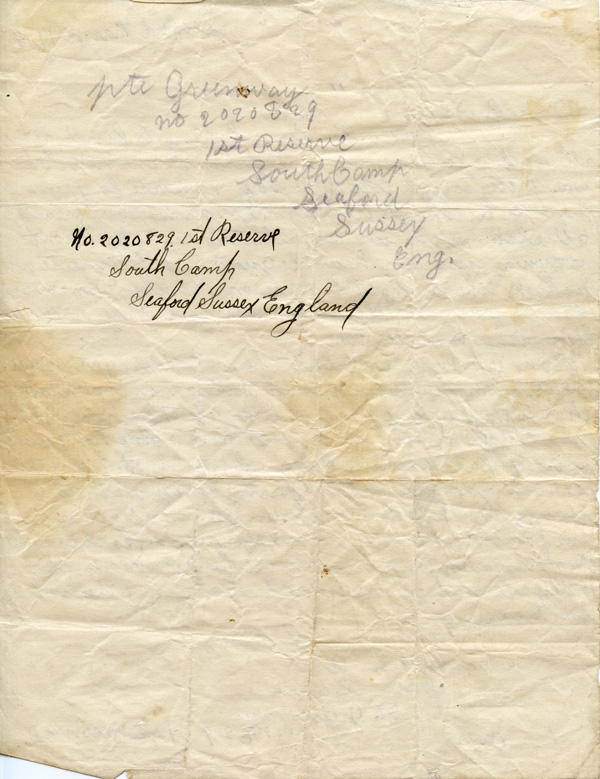 pte Greenway
no 2020829
1st Reserve
South Camp
Seaford
Sussex
Eng.
No. 2020829. 1st Reserve
South Camp
Seaford Sussex England